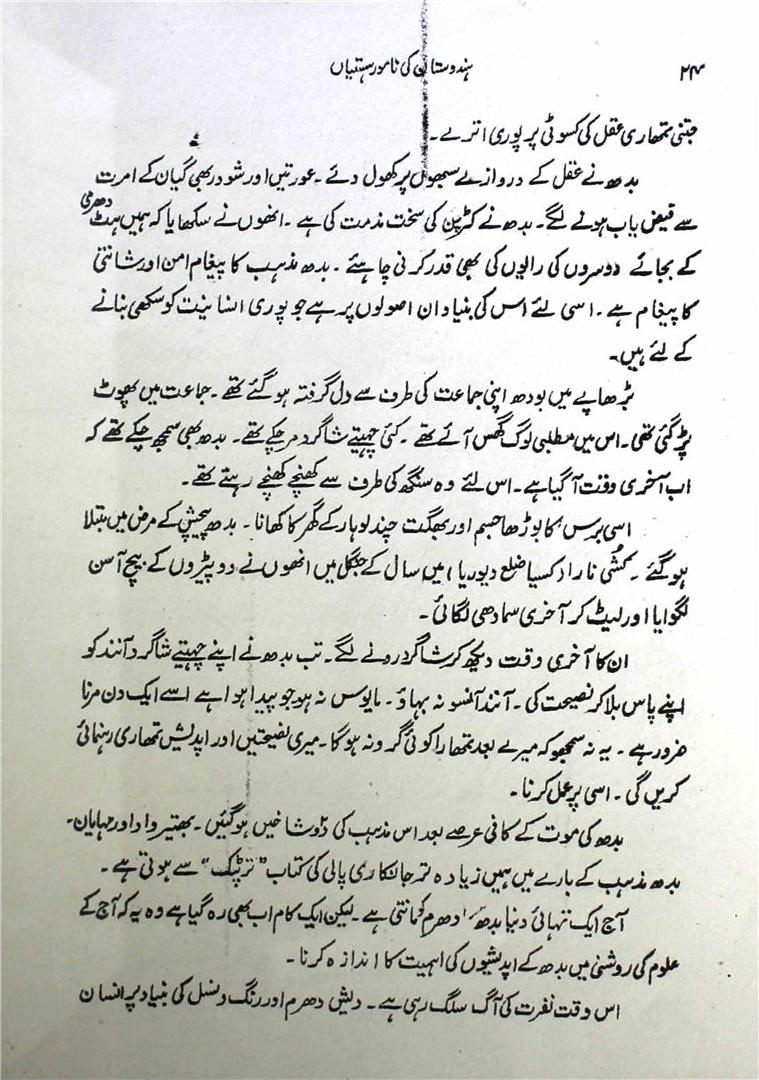 ۲۴
ہندوستان کی نامور ہستیاں
جتنی تمھاری عقل کی کسوٹی پر پوری اترے۔
بدھ نے عقل کے دروازے سبھوں پر کھول دئے۔ عورتیں اور شودر بھی گیان کے امرت
سے فیض یاب ہونے لگے۔ بدھ نے کٹرپن کی سخت مذمت کی ہے۔ انھوں نے سکھایا کہ ہمیں ہٹ دھرمی
کے بجائے دوسروں کی رایوں کی بھی قدر کرنی چاہئے۔ بدھ مذہب کا پیغام امن اور شانتی
کا پیغام ہے۔ اسی لئے اس کی بنیاد ان اصولوں پر ہے جو پوری انسانیت کو سکھی بنانے
کے لئے ہیں۔
بڑھاپے میں بودھ اپنی جماعت کی طرف سے دل گرفتہ ہو گئے تھے۔ جماعت میں پھوٹ
پڑ گئی تھی۔ اس میں مطلبی لوگ گھس آئے تھے۔ کئی چہیتے شاگرد مر چکے تھے۔ بدھ بھی سمجھ چکے تھے کہ
اب آخری وقت آگیا ہے۔ اس لئے وہ سنگھ کی طرف سے کھنچے کھنچے رہتے تھے۔
اسی برس کا بوڑھا جسم اور بھگت چند لوہار کے گھر کا کھانا۔ بدھ پیچش کے مرض میں مبتلا
ہو گئے۔ کُشی نارا (کسیا ضلع دیوریا) میں سال کے جنگل میں انھوں نے دو پیڑوں کے بیچ آسن
لگوایا اور لیٹ کر آخری سمادھی لگائی۔
ان کا آخری وقت دیکھ کر شاگرد رونے لگے۔ تب بدھ نے اپنے چہیتے شاگرد آنند کو
اپنے پاس بلا کر نصیحت کی۔ آنند آنسو نہ بہاؤ۔ مایوس نہ ہو جو پیدا ہوا ہے اسے ایک دن مرنا
ضرور ہے۔ یہ نہ سمجھو کہ میرے بعد تمھارا کوئی گرو نہ ہوگا۔ میری نصیحتیں اور اپدیش تمھاری رہنمائی
کریں گی۔ اسی پر عمل کرنا۔
بدھ کی موت کے کافی عرصے بعد اس مذہب کی دو شاخیں ہوگئیں۔ تھیرواد اور مہایان۔
بدھ مذہب کے بارے میں ہمیں زیادہ تر جانکاری پالی کی کتاب "ترپٹک" سے ہوتی ہے۔
آج ایک تہائی دنیا بدھ دھرم کو مانتی ہے۔ لیکن ایک کام اب بھی رہ گیا ہے وہ یہ کہ آج کے
علوم کی روشنی میں بدھ کے اپدیشوں کی اہمیت کا اندازہ کرنا۔
اس وقت نفرت کی آگ سلگ رہی ہے۔ دیش دھرم اور رنگ و نسل کی بنیاد پر انسان